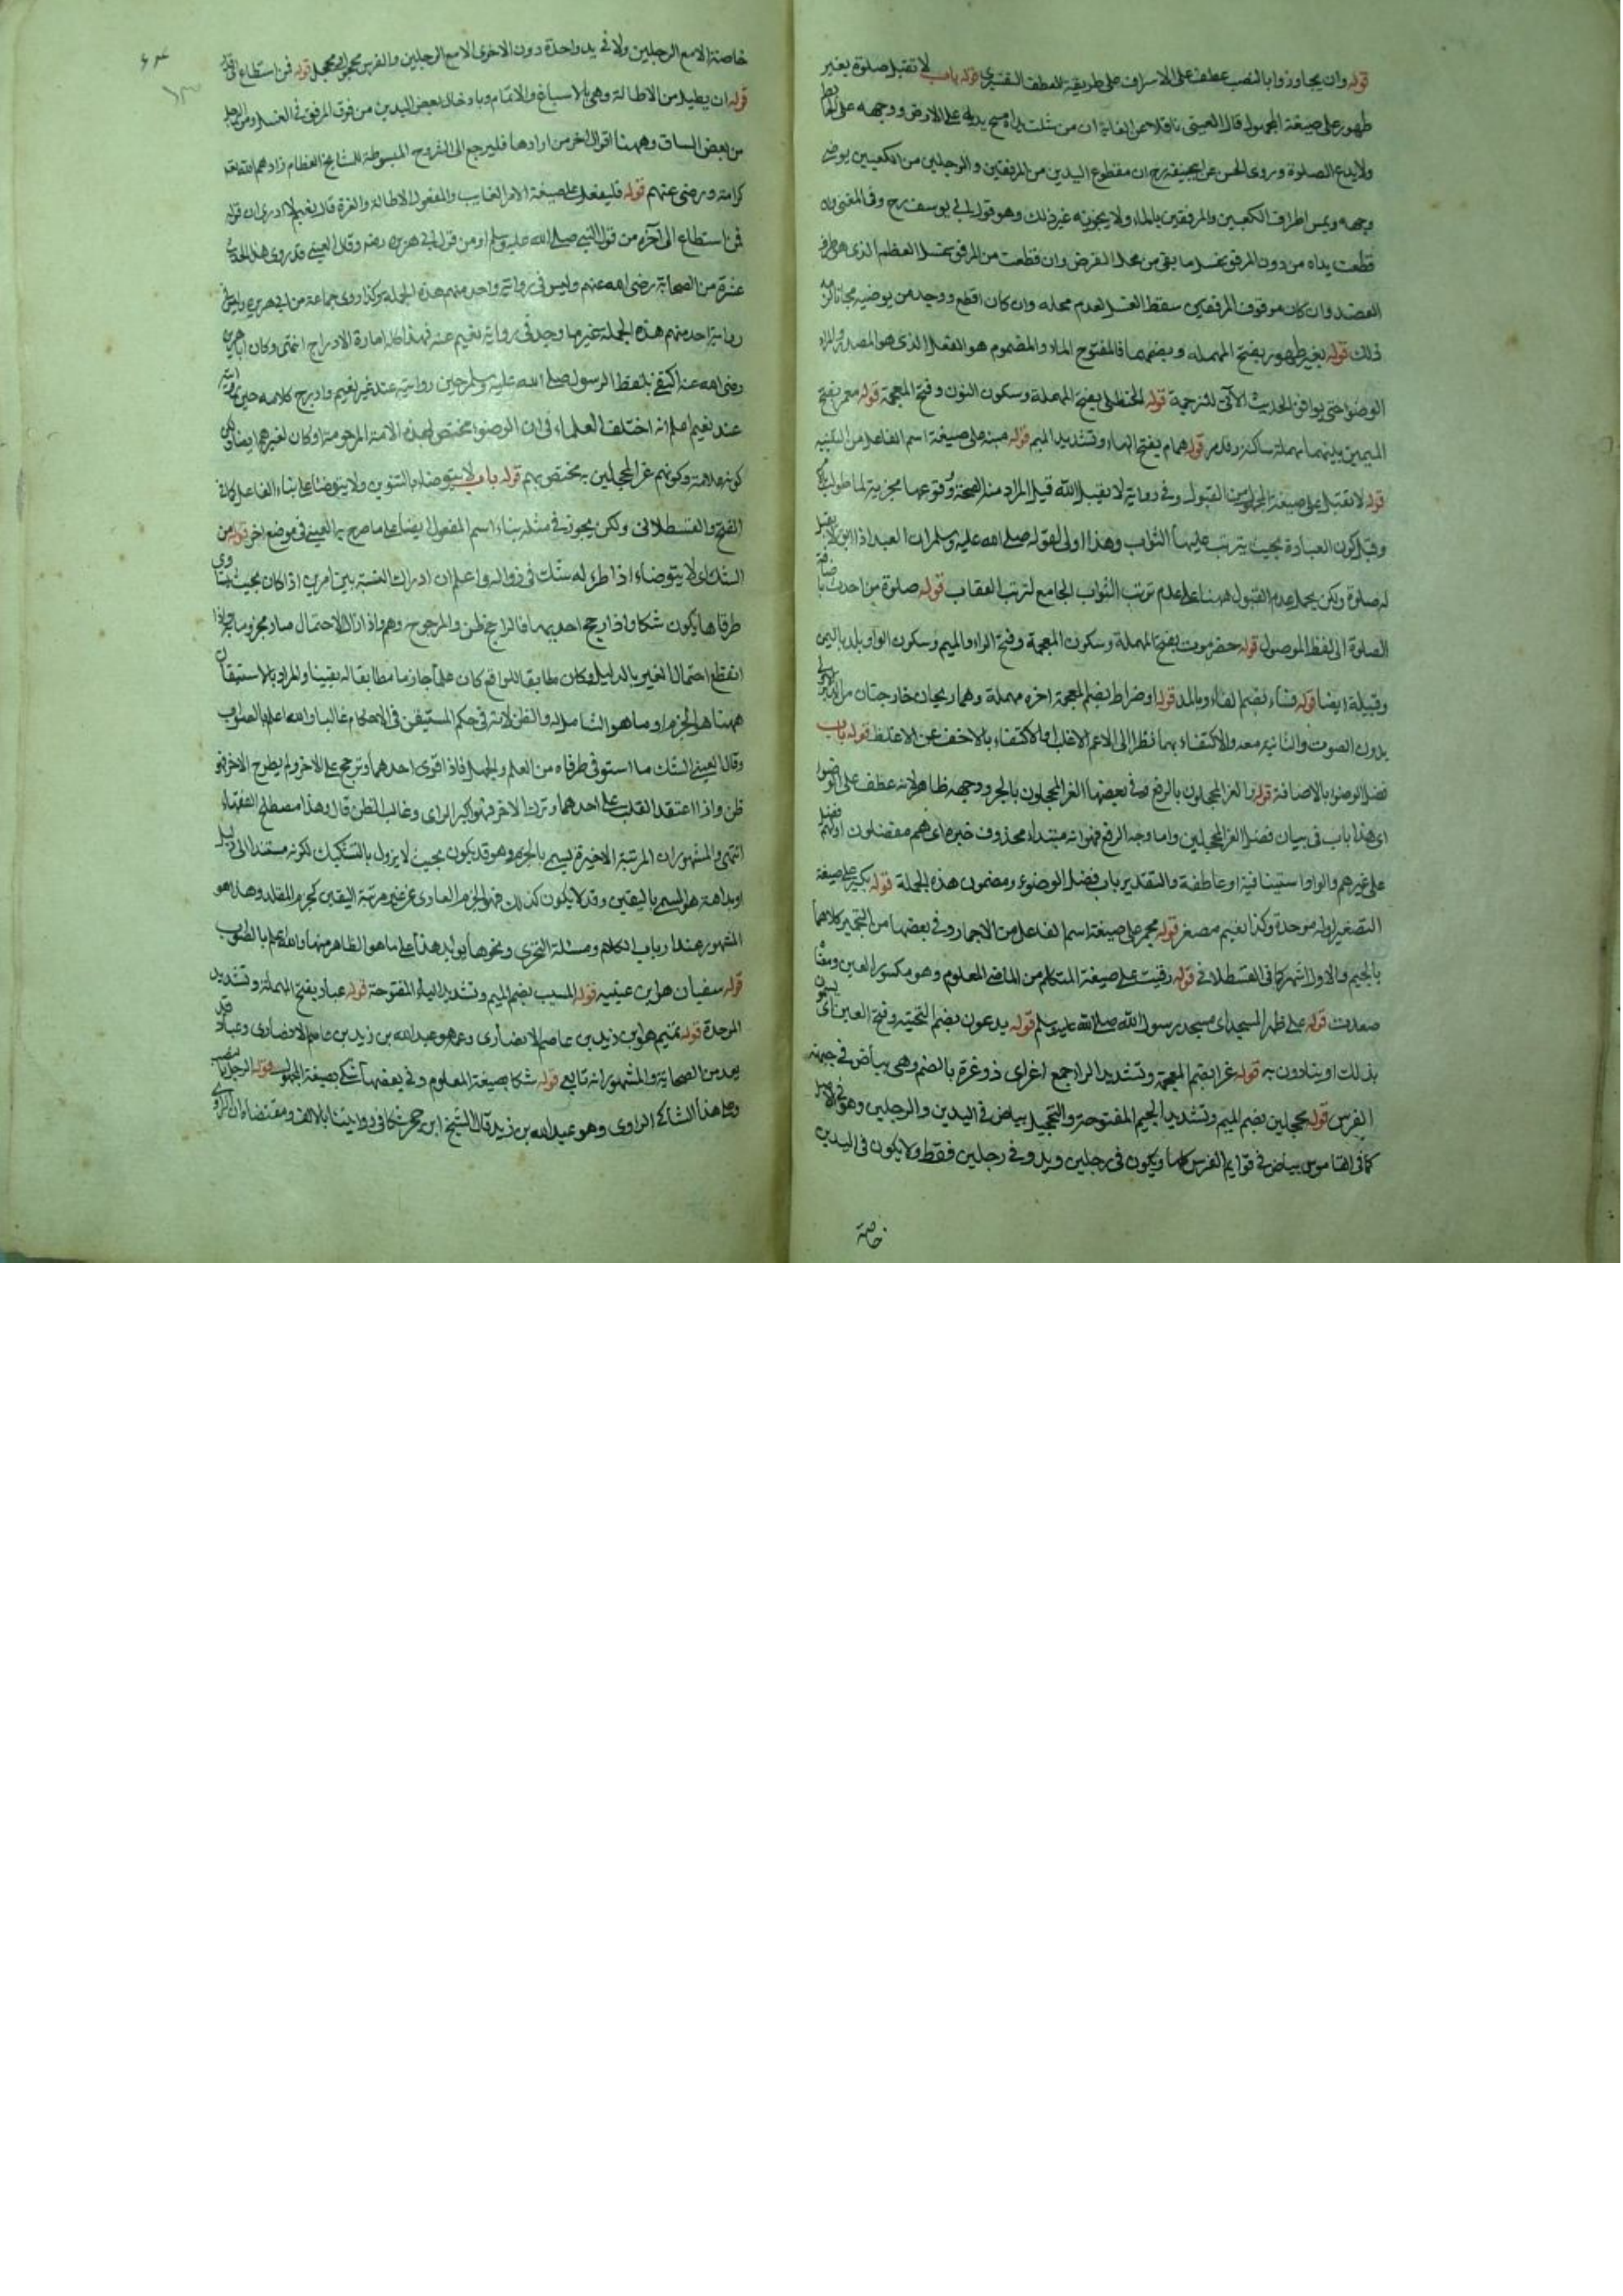 قوله وان يجاوزوا بالنصب عطف على الاسراف على طريقة العطف التفسيري قوله باب لا تقبل صلوة بغير
طهور على صيغة المجهول قال العيني ناقلا عن الغاية ان من شلت يداه مسح يديه على الارض ووجهه على الحائط
ولا يدع الصلوة وروى الحسن عن ابيحنيفة رح ان مقطوع اليدين من المرفقين والرجلين من الكعبين يوضي
وجهه ويمس اطراف الكعبين والمرفقين بالماء ولا يجزيه غير ذلك وهو قول ابي يوسف رح وفي المغني وان
قطعت يداه من دون المرفق يغسل ما بقي من محل الفرض وان قطعت من المرفق يغسل العظم الذي هو طرف
العضد وان كان من فوق المرفقين سقط الغسل لعدم محله وان كان اقطع ووجد من يوضيه مجانا لزمه
ذلك قوله بغير طهور بفتح المهملة وبضمها فالمفتوح الماء والمضموم هو الفعل الذي هو المصدر والمراد
الوضوء حتى يوافق الحديث الآتي للترجمة قوله الحنظلي بفتح المهملة وسكون النون وفتح المعجمة قوله معمر بفتح
الميمين بينهما مهملة ساكنة وقد مر قوله همام بفتح الهاء وتشديد الميم قوله منبه على صيغة اسم الفاعل من التنبيه
قوله لا تقبل على صيغة المجهول من القبول وفي رواية لا يقبل الله قيل المراد منه الصحة وقوعها مجزية لما طولب به
وقيل كون العبادة بحيث يترتب عليها الثواب وهذا اولى لقوله صلى الله عليه وسلم ان العبد اذا ابق لا يقبل
له صلوة ولكن يحمل عدم القبول ههنا على عدم ترتب الثواب الجامع لترتب العقاب قوله صلوة من احدث باضافة
الصلوة الى لفظ الموصول قوله حضرموت بفتح المهملة وسكون المعجمة وفتح الراء والميم وسكون الواو بلد باليمن
وقبيلة ايضا قوله فساء بضم الفاء وبالمد قوله او ضراط بضم المعجمة اخره مهملة وهما ريحان خارجتان من الدبر
بدون الصوت والثانية معه والاكتفاء بهما نظرا الى الاعم الاغلب او الاكتفاء بالاخف عن الاغلظ قوله باب
فضل الوضوء بالاضافة قوله الغر المحجلون بالرفع وفي بعضها الغر المحجلون بالجر ووجهه ظاهر لانه عطف على الوضوء
اي هذا باب في بيان فضل الغر المحجلين واما وجه الرفع فهو انه مبتداء محذوف خبره اي هم مفضلون او لهم فضل
على غيرهم والواو استينافية او عاطفة والتقدير باب فضل الوضوء ومضمون هذه الجملة قوله بكير على صيغة
التصغير اوله موحدة وكذا نعيم مصغر قوله مجمر على صيغة اسم الفاعل من الاجمار وفي بعضها من التجمير كلاهما
بالجيم والاول اشهر كما في القسطلاني قوله رقيت على صيغة المتكلم من الماضي المعلوم وهو مكسور العين ومعناه
صعدت قوله على ظهر المسجد اي مسجد رسول الله صلى الله عليه وسلم قوله يدعون بضم التحتية وفتح العين اي يسمون
بذلك او ينادون به قوله غرا بضم المعجمة وتشديد الراء جمع اغر اي ذو غرة بالضم وهي بياض في جبهة
الفرس قوله محجلين بضم الميم وتشديد الجيم المفتوحة والتحجيل بياض في اليدين والرجلين وهو في الاصل
كما في القاموس بياض في قوايم الفرس كلها ويكون في رجلين ويد وفي رجلين فقط ولا يكون في اليدين
خاصة
خاصة الا مع الرجلين ولا في يد واحدة دون الاخرى الا مع الرجلين والفرس محجول ومحجل قوله فمن استطاع اي قدر
قوله ان يطيل من الاطالة وهي بالاسباغ والاتمام وبادخال بعض اليدين من فوق المرفق في الغسل ومن الرجل
من بعض الساق وههنا اقوال اخر من ارادها فليرجع الى الشروح المبسوطة للمشايخ العظام زادهم الله تعالى
كرامة ورضي عنهم قوله فليفعل على صيغة الامر الغايب والمفعول الاطالة والغرة قال نعيم لا ادري ان قوله
فمن استطاع الى آخره من قول النبي صلى الله عليه وسلم او من قول ابي هريرة رضه وقال العيني قد روى هذا الحديث
عشرة من الصحابة رضي الله عنهم وليس في رواية واحد منهم هذه الجملة وكذا روى جماعة من ابي هريرة وليس في
رواية احد منهم هذه الجملة غير ما وجد في رواية نعيم عنه فهذا كله امارة الادراج انتهى وكان ابا هريرة
رضي الله عنه اكتفى بلفظ الرسول صلى الله عليه وسلم حين روايته عند غير نعيم وادرج كلامه حين روايته
عند نعيم اعلم انه اختلف العلماء في ان الوضوء مختص لهذه الامة المرحومة او كان لغيرهم ايضا لكن
كونه علامة وكونهم غر المحجلين به مختص بهم قوله باب لا يتوضاء بالتنوين ولا يتوضاء على بناء الفاعل كما في
الفتح والقسطلاني ولكن يجوز في مثله بناء اسم المفعول ايضا على ما صرح به العيني في موضع اخر قوله من
الشك اي لا يتوضاء اذا طرء له شك في زواله واعلم ان ادراك النسبة بين امرين اذا كان بحيث يتساوى
طرفاها يكون شكا واذا رجح احديهما فالراجح ظن والمرجوح وهم واذا زال الاحتمال صار مجزوما فاذا
انقطع احتمال الغير بالدليل وكان مطابقا للواقع كان علما جازما مطابقا له يقينا والمراد بالاستيقان
ههنا هو الجزم او ما هو الشامل له والظن لانه في حكم المستيقن في الاحكام غالبا والله اعلم بالصواب
وقال العيني الشك ما استوى طرفاه من العلم والجهل فاذا قوى احدهما وترجح على الاخر ولم يطرح الاخر فهو
ظن واذا اعتقد القلب على احدهما وترك الاخر فهو اكبر الراي وغالب الظن قال وهذا مصطلح الفقهاء
انتهى والمشهور ان المرتبة الاخيرة يسمى بالجزم وهو قد يكون بحيث لا يزول بالتشكيك لكونه مستندا الى دليل
او بداهة هو المسمى باليقين وقد لا يكون كذلك فهو الجزم العاري عن مرتبة اليقين كجزم المقلد وهذا هو
المشهور عند ارباب الكلام ومسئلة التحري ونحوها يؤيد هذا على ما هو الظاهر منها والله اعلم بالصواب
قوله سفيان هو ابن عيينه قوله المسيب بضم الميم وتشديد الياء المفتوحة قوله عباد بفتح المهملة وتشديد
الموحدة قوله تميم هو ابن زيد بن عاصم الانصاري وعمه هو عبد الله بن زيد بن عاصم الانصاري وعباد قد
يعد من الصحابة والمشهور انه تابعي قوله شكا بصيغة المعلوم وفي بعضها شكي بصيغة المجهول قوله الرجل بالنصب
وعلى هذا الشاكي الراوي وهو عبد الله بن زيد قال الشيخ ابن حجر شكا في روايتنا بالالف ومقتضاه ان الراوي